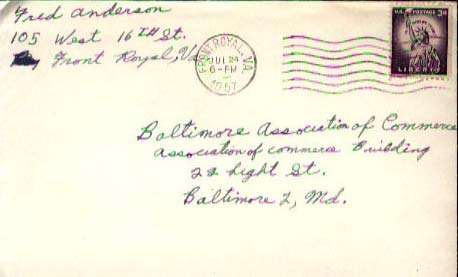 Fred Anderson
105 West 16TH St.
Front Royal, Va
FRONT ROYAL, VA.
JUL 24
6-PM
1957
U.S. POSTAGE 3¢
LIBERTY
Baltimore Association of Commerce
Association of commerce Building
22 Light St.
Baltimore 2, Md.